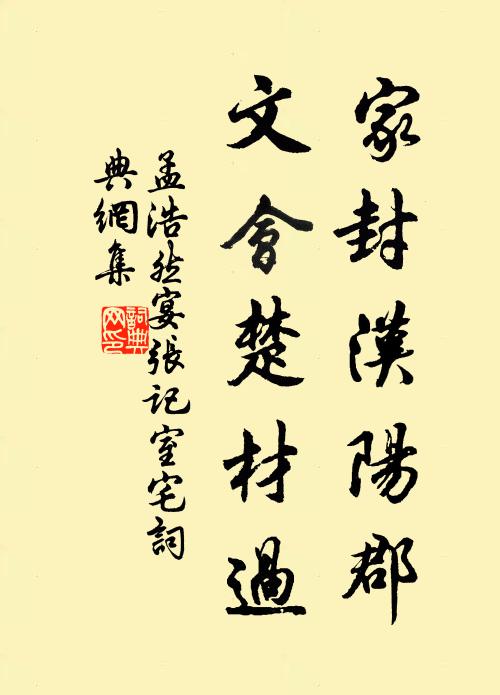 家封漢陽郡
文會楚材過
孟浩然宴張記室宅詞
典網集
詞典
网印